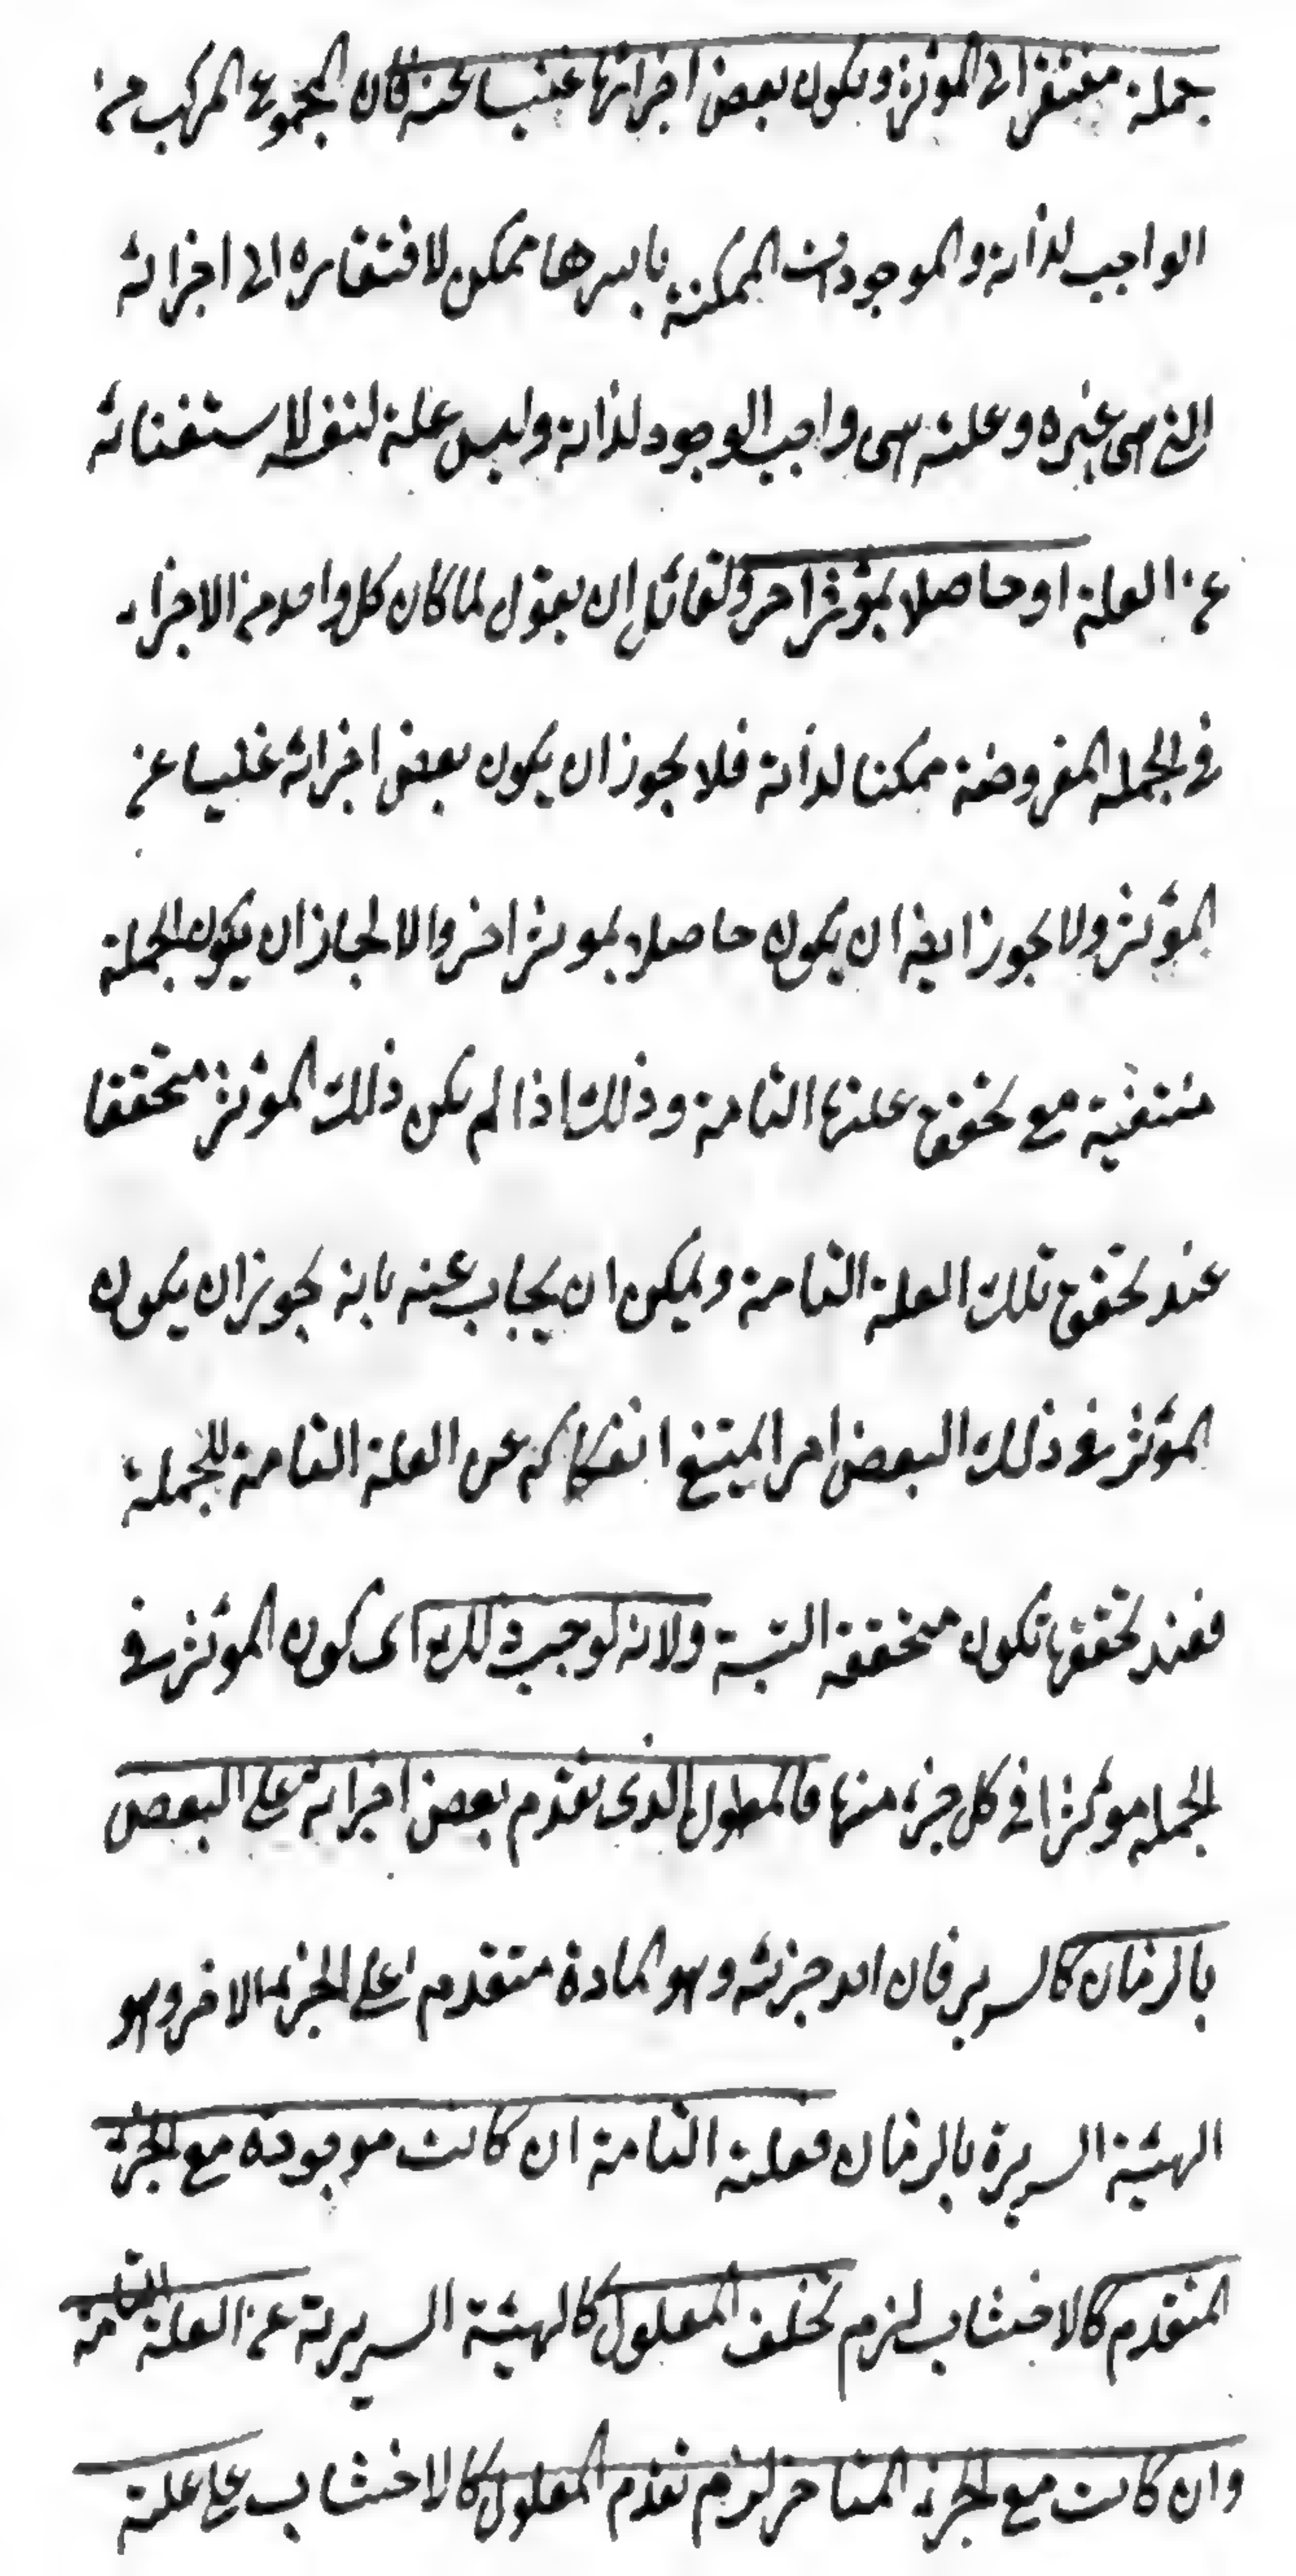 جملة مفتقرا الى المؤثر ويكون بعض اجزائها غنيا عنه فان المجموع المركب من
الواجب لذاته والموجودات الممكنة باسرها ممكن لافتقاره الى اجزائه
التى هى غيره وعلته هى واجب الوجود لذاته وليس علة لنفسه لاستغنائه
عن العلة او حاصلا بمؤثر اخر ولقائل ان يقول لما كان كل واحد من الاجزاء
فى الجملة المفروضة ممكنا لذاته فلا يجوز ان يكون بعض اجزائه غنيا عن
المؤثر ولا يجوز ايضا ان يكون حاصلا بموثر اخر والا لجاز ان يكون الجملة
منتفية مع تحقق علتها التامة وذلك اذا لم يكن ذلك المؤثر متحققا
عند تحقق تلك العلة التامة ويمكن ان يجاب عنه بانه يجوز ان يكون
المؤثر فى ذلك البعض امرا يمتنع انفكاكه عن العلة التامة للجملة
فعند تحققها تكون متحققة البتة ولانه لو وجب ذلك اى كون المؤثر فى
الجملة موثرا فى كل جزء منها فالمعلول الذى تقدم بعض اجزائه على البعض
بالزمان كالسرير فان احد جزئيه وهو المادة متقدم على الجزء الاخر وهو
الهيئة السريرة بالزمان فعلته التامة ان كانت موجودة مع الجزء
المتقدم كالاخشاب لزم تخلف المعلول كالهيئة السريرية عن العلة التامة
وان كانت مع الجزء المتاخر لزم تقدم المعلول كالاخشاب على علته